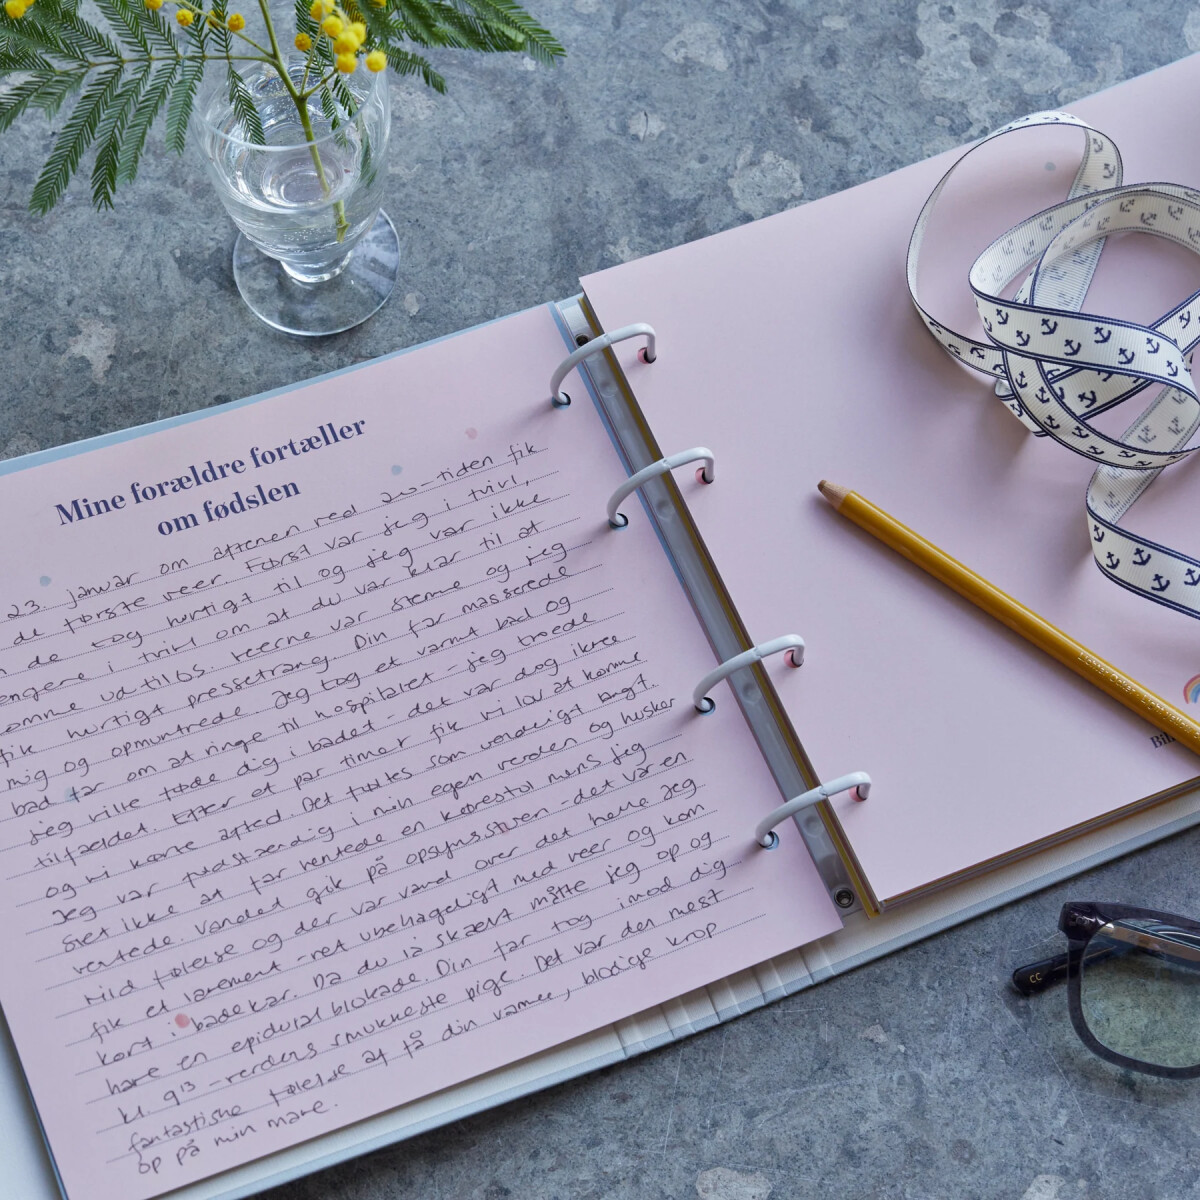 Mine forældre fortæller
om fødslen
23. januar om aftenen ved 20-tiden fik
de første veer. Først var jeg i tvivl,
de tog hurtigt til og jeg var ikke
længere i tvivl om at du var klar til at
komme ud til os. Veerne var stemme og jeg
fik hurtigt pressetrang. Din far masserede
mig og opmuntrede. Jeg tog et varmt bad og
bad far om at ringe til hospitalet - jeg troede
jeg ville føde dig i badet - det var dog ikke
tilfældet. Efter et par timer fik vi lov at komme
og vi kørte afsted. Det føltes som uendeligt langt.
Jeg var fuldstændig i min egen verden og husker
ikke at far hentede en kørestol mens jeg
ventede. Vandet gik på opsynsstuen - det var en
vild følelse og der var vand over det hele. Jeg
fik et lavement - ret ubehageligt med veer og kom
kort i badekar. Da du lå skævt måtte jeg op og
have en epidural blokade. Din far tog imod dig
kl. 9 13 - verdens smukkeste pige. Det var den mest
fantastiske følelse at få din varme, blodige krop
op på min mave.
Bil
CC